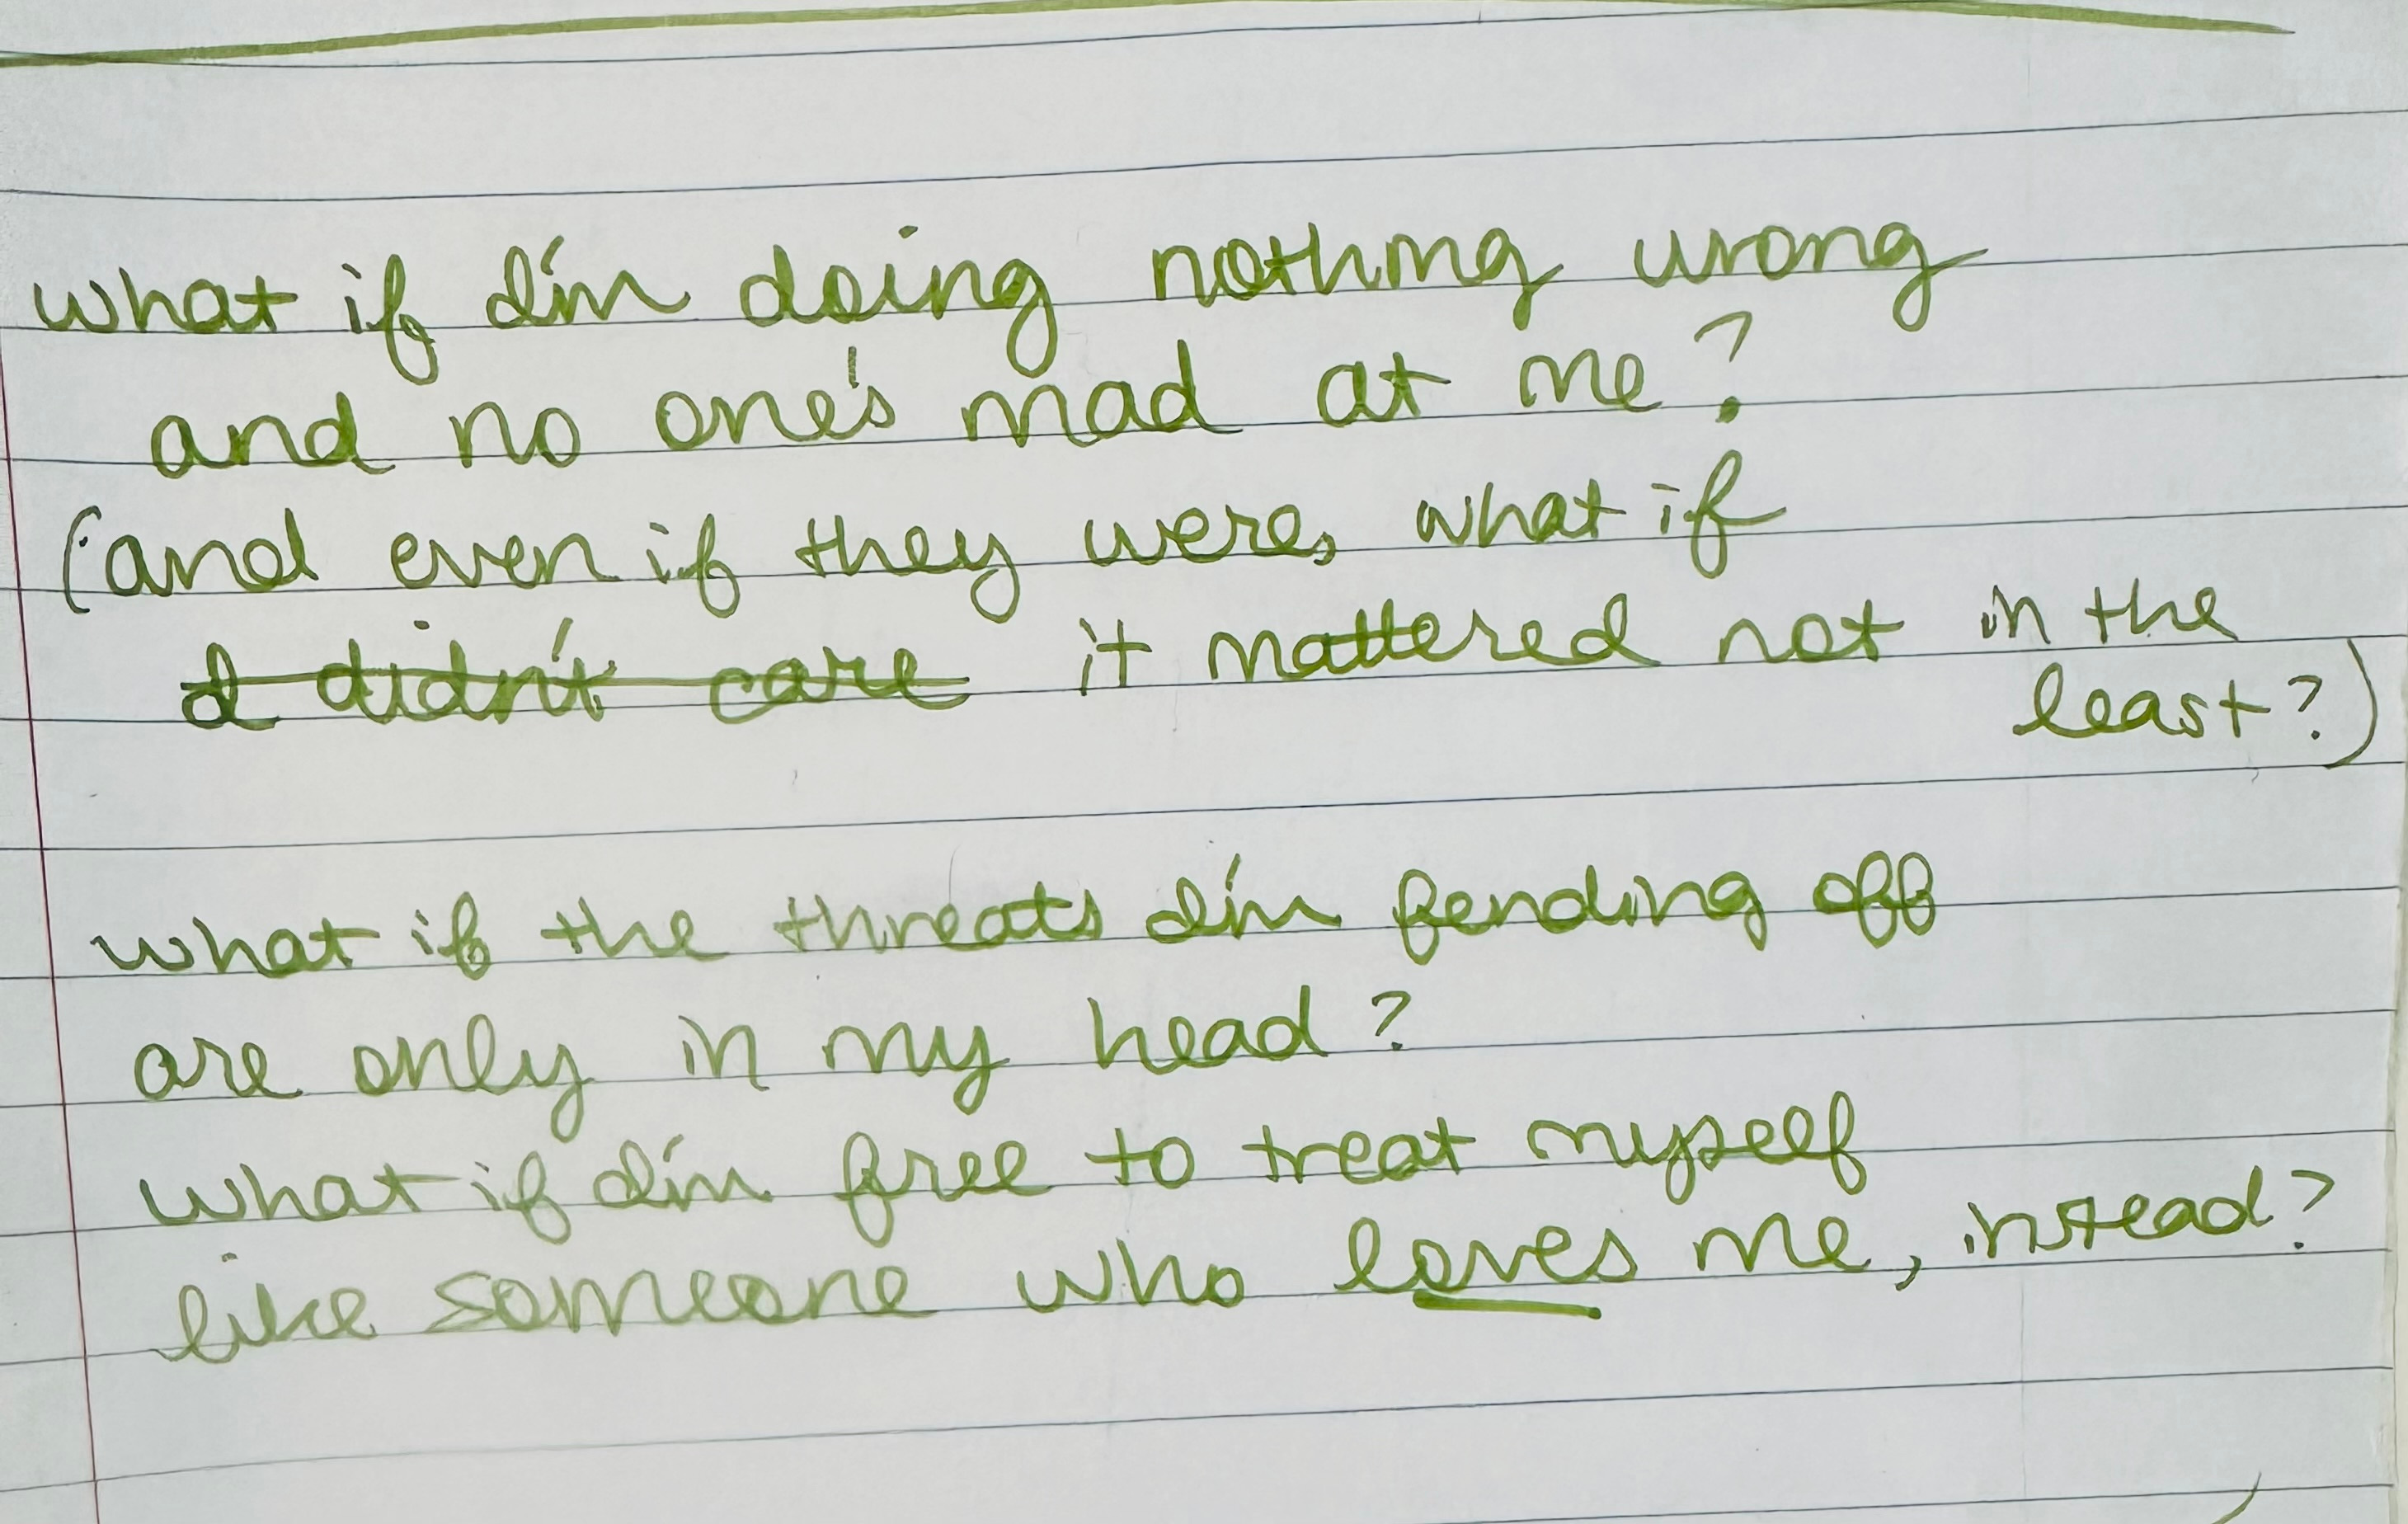 what if I'm doing nothing wrong
and no one's mad at me?
(and even if they were, what if
I didn't care it mattered not in the
least?)
what if the threats I'm fending off
are only in my head?
what if I'm free to treat myself
like someone who loves me, instead?